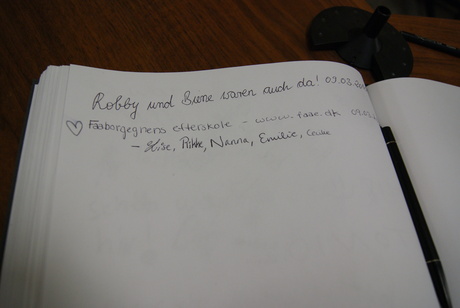 Robby und Sune waren auch da! 09.03.
Faaborgegnens efterskole - www.faae.dk
- Stise, Rikke, Nanna, Emilie,